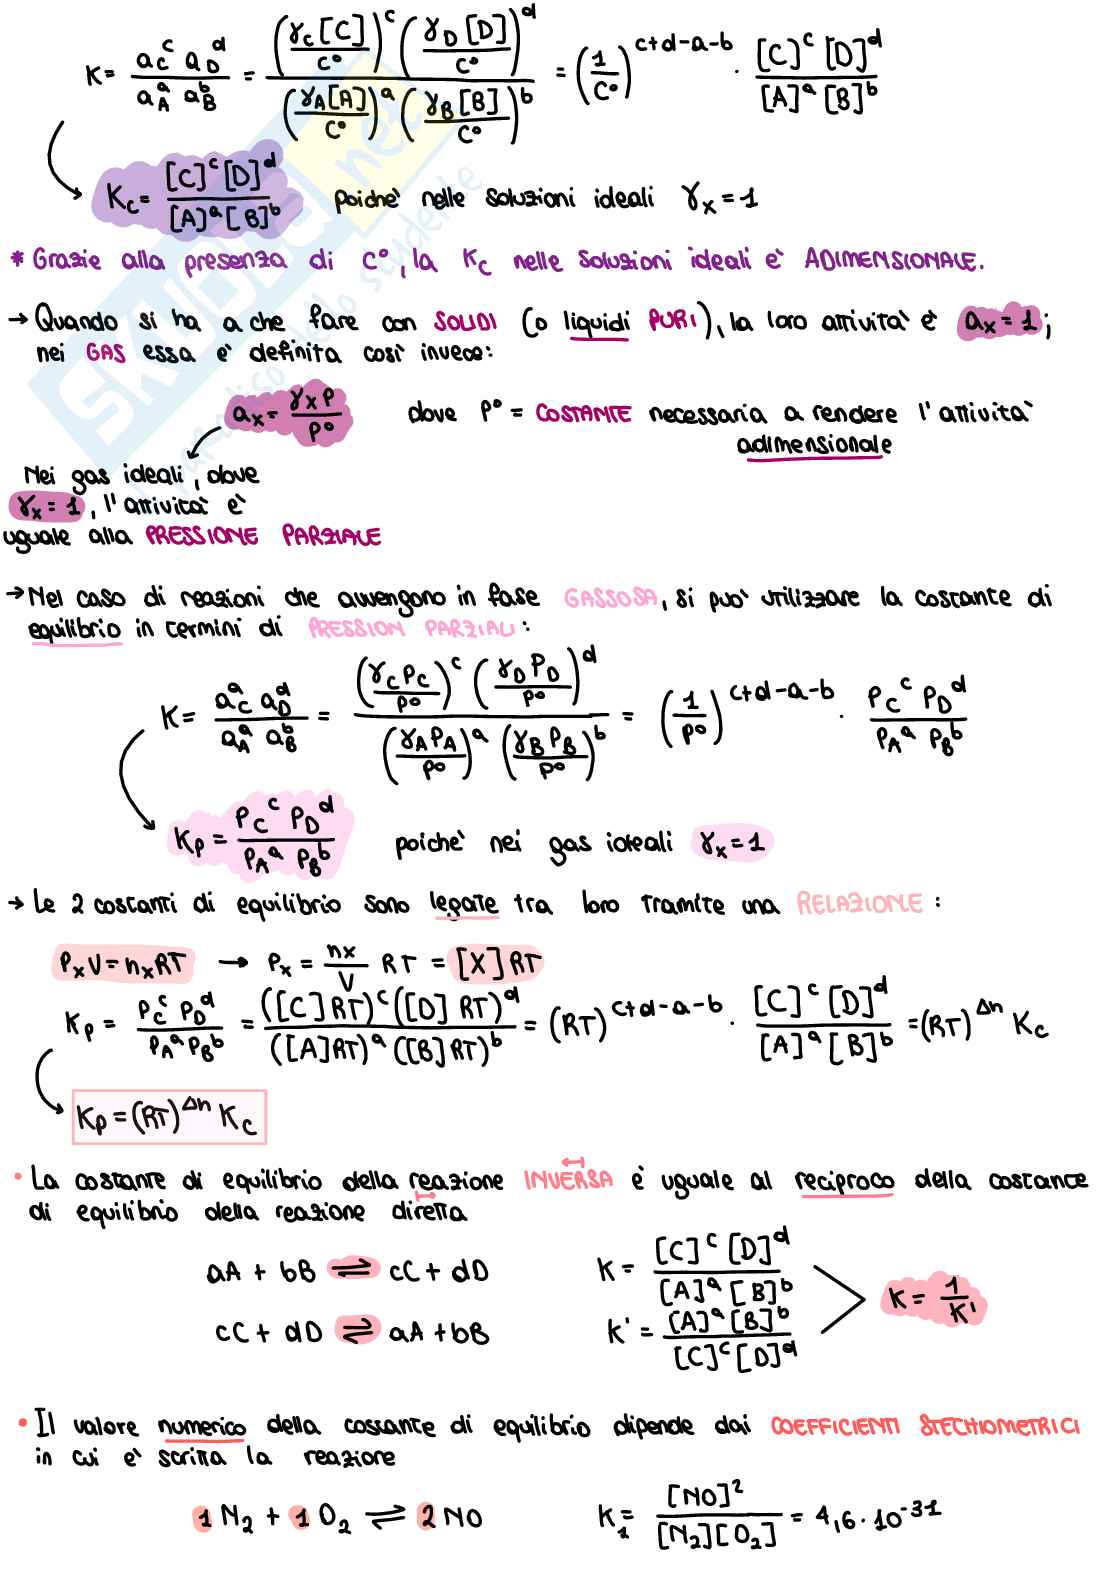 K = a_C^c a_D^d / a_A^a a_B^b = (γ_C[C]/C°)^c (γ_D[D]/C°)^d / (γ_A[A]/C°)^a (γ_B[B]/C°)^b = (1/C°)^(c+d-a-b) · [C]^c [D]^d / [A]^a [B]^b
K_C = [C]^c [D]^d / [A]^a [B]^b poichè nelle soluzioni ideali γ_x = 1
* Grazie alla presenza di C°, la K_C nelle soluzioni ideali è ADIMENSIONALE.
→ Quando si ha a che fare con SOLIDI (o liquidi PURI), la loro attività è a_x = 1;
nei GAS essa è definita così invece:
a_x = γ_x P / P° dove P° = COSTANTE necessaria a rendere l'attività
adimensionale
Nei gas ideali, dove
γ_x = 1, l'attività è
uguale alla PRESSIONE PARZIALE
→ Nel caso di reazioni che avvengono in fase GASSOSA, si può utilizzare la costante di
equilibrio in termini di PRESSION PARZIALI:
K = a_C^a a_D^d / a_A^a a_B^b = (γ_C P_C/P°)^c (γ_D P_D/P°)^d / (γ_A P_A/P°)^a (γ_B P_B/P°)^b = (1/P°)^(c+d-a-b) · P_C^c P_D^d / P_A^a P_B^b
K_P = P_C^c P_D^d / P_A^a P_B^b poichè nei gas ideali γ_x = 1
→ Le 2 costanti di equilibrio sono legate tra loro tramite una RELAZIONE:
P_x V = n_x RT → P_x = n_x/V RT = [X] RT
K_P = P_C^c P_D^d / P_A^a P_B^b = ([C]RT)^c ([D]RT)^d / ([A]RT)^a ([B]RT)^b = (RT)^(c+d-a-b) · [C]^c [D]^d / [A]^a [B]^b = (RT)^Δn K_C
K_P = (RT)^Δn K_C
• La costante di equilibrio della reazione INVERSA è uguale al reciproco della costante
di equilibrio della reazione diretta
aA + bB ⇌ cC + dD K = [C]^c [D]^d / [A]^a [B]^b
cC + dD ⇌ aA + bB K' = [A]^a [B]^b / [C]^c [D]^d
K = 1/K'
• Il valore numerico della costante di equilibrio dipende dai COEFFICIENTI STECHIOMETRICI
in cui è scritta la reazione
1 N₂ + 1 O₂ ⇌ 2 NO K₁ = [NO]² / [N₂][O₂] = 4,6 · 10⁻³¹
SKUOLA.net
il paradiso dello studente